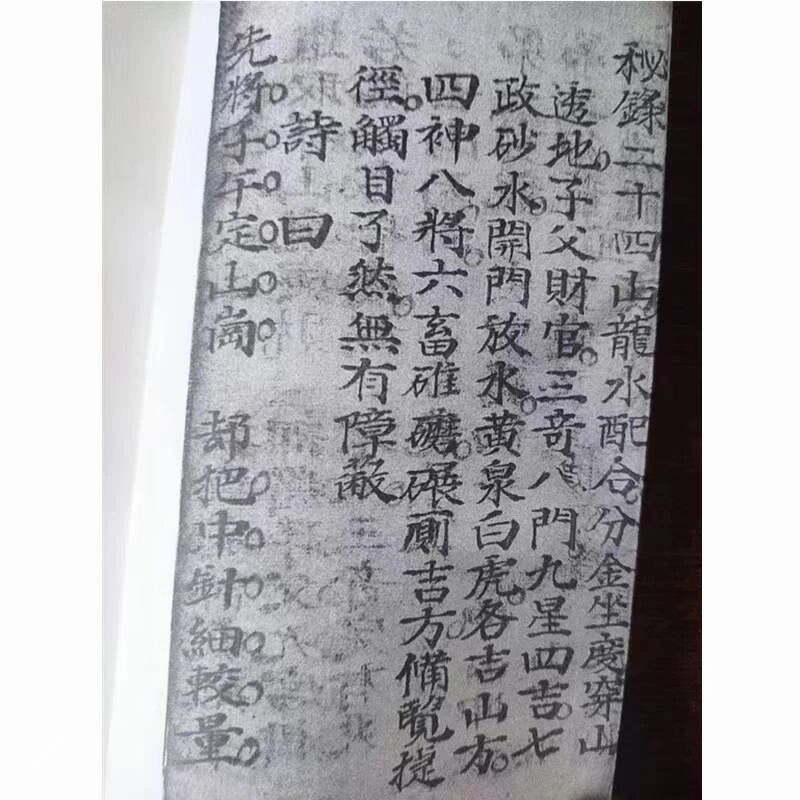 秘錄二十四山龍水配合。分金坐度穿山
透地。子父財官。三奇八門。九星四吉。七
政砂水。開門放水。黃泉白虎。各吉山方。
四神八將。六畜碓磨碾厠吉方。備覽捷
徑。觸目了然。無有障蔽。
詩曰
先將子午定山崗 却把中針細較量。